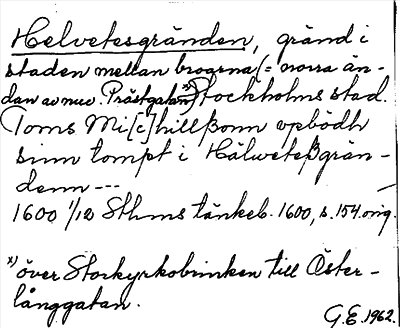 Helvetesgränden, gränd i
staden mellan broarna (= norra än-
dan av nuv. Prästgatan x)) Stockholms stad.
Toms Mi[c]hillßonn vpbödh
sinn tompt i Hälweteßgrän-
denn ---
1600 1/12 Sthms tänkeb. 1600, s. 154. orig.
x) över Storkyrkobrinken till Öster-
långgatan.
G.E. 1962.